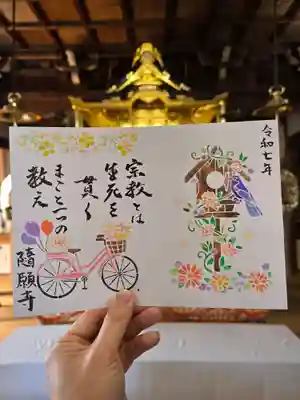 宗教とは
生死を
貫く
まこと一つの
教え
隨願寺
令和七年